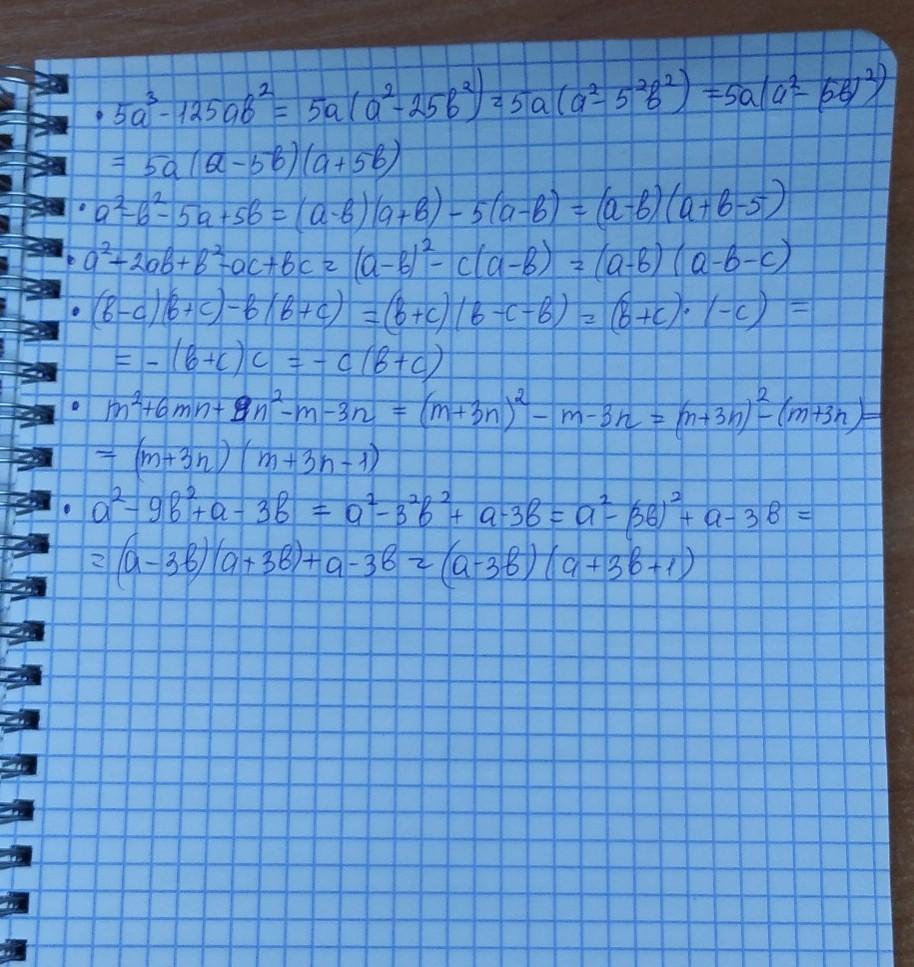 • 5a³ - 125ab² = 5a(a² - 25b²) = 5a(a² - 5²b²) = 5a(a² - (5b)²)
= 5a(a - 5b)(a + 5b)
• a² - b² - 5a + 5b = (a - b)(a + b) - 5(a - b) = (a - b)(a + b - 5)
• a² - 2ab + b² - ac + bc = (a - b)² - c(a - b) = (a - b)(a - b - c)
• (b - c)(b + c) - b(b + c) = (b + c)(b - c - b) = (b + c)·(-c) =
= -(b + c)c = -c(b + c)
• m² + 6mn + 9n² - m - 3n = (m + 3n)² - m - 3n = (m + 3n)² - (m + 3n) =
= (m + 3n)(m + 3n - 1)
• a² - 9b² + a - 3b = a² - 3²b² + a - 3b = a² - (3b)² + a - 3b =
= (a - 3b)(a + 3b) + a - 3b = (a - 3b)(a + 3b + 1)